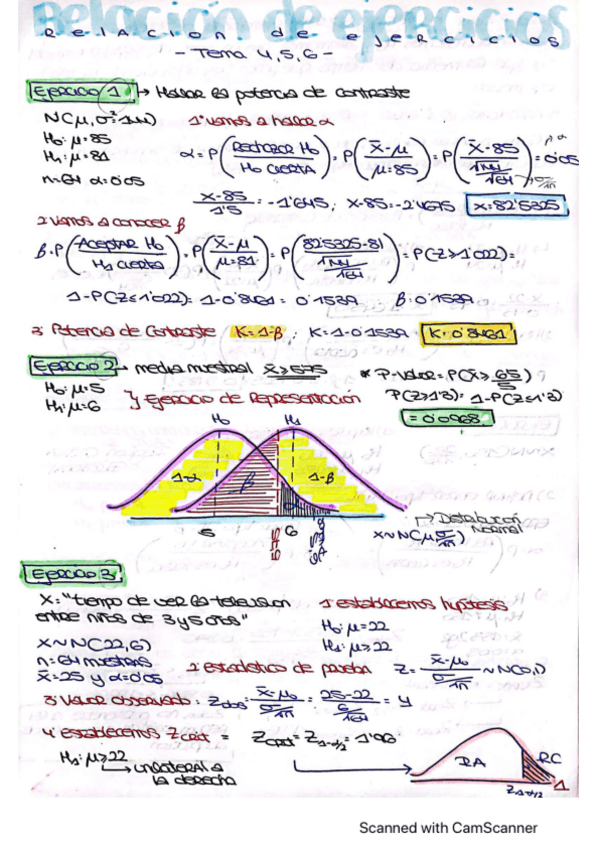 Relación de ejercicios
RELACION DE EJERCICIOS
- Tema 4, 5, 6 -
Ejercicio 1 → Hallar la potencia de contraste
N(μ, σ²=144) 1º vamos a hallar α
H₀: μ=85
H₁: μ=81
n=64 α=0'05
α = P(Rechazar H₀ / H₀ cierta) = P(x̄-μ / μ=85) = P(x̄-85 / √144/√64) = 0'05
x-85 / 1'5 = -1'645; x-85=-2'4675 x=82'5325
2º vamos a conocer β
β = P(Aceptar H₀ / H₁ cierta) = P(x̄-μ / μ=81) = P(82'5325-81 / √144/√64) = P(Z≥1'022) =
1-P(Z≤1'022) = 1-0'8461 = 0'1539 β=0'1539
3º Potencia de Contraste K=1-β; K=1-0'1539 K=0'8461
Ejercicio 2 → media muestral
H₀: μ=5
H₁: μ=6
Ejercicio de Representación
* P-valor = P(x̄ ≥
P(Z≥1'3) = 1-P(Z≤1'3)
= 0'0968
H₀ H₁
1-α β 1-β α
5 6
→ Distribución Normal
x~N(μ, σ/√n)
Ejercicio 3
X: "tiempo de ver la television
entre niños de 3 y 5 años"
1º establecemos hipótesis
H₀: μ=22
H₁: μ≥22
X~N(22,6)
n=64 muestras
x̄=25 y α=0'05
2º estadístico de prueba Z = x̄-μ₀ / σ/√n ~ N(0,1)
3º Valor observado: Zobs = x̄-μ₀ / σ/√n = 25-22 / 6/√64 = 4
4º establecemos Zcrit = Zcrit = Z1-α/2 = 1'96
H₁: μ≥22
→ unilateral a
la derecha
RA RC
Z1-α/2 1
Scanned with CamScanner